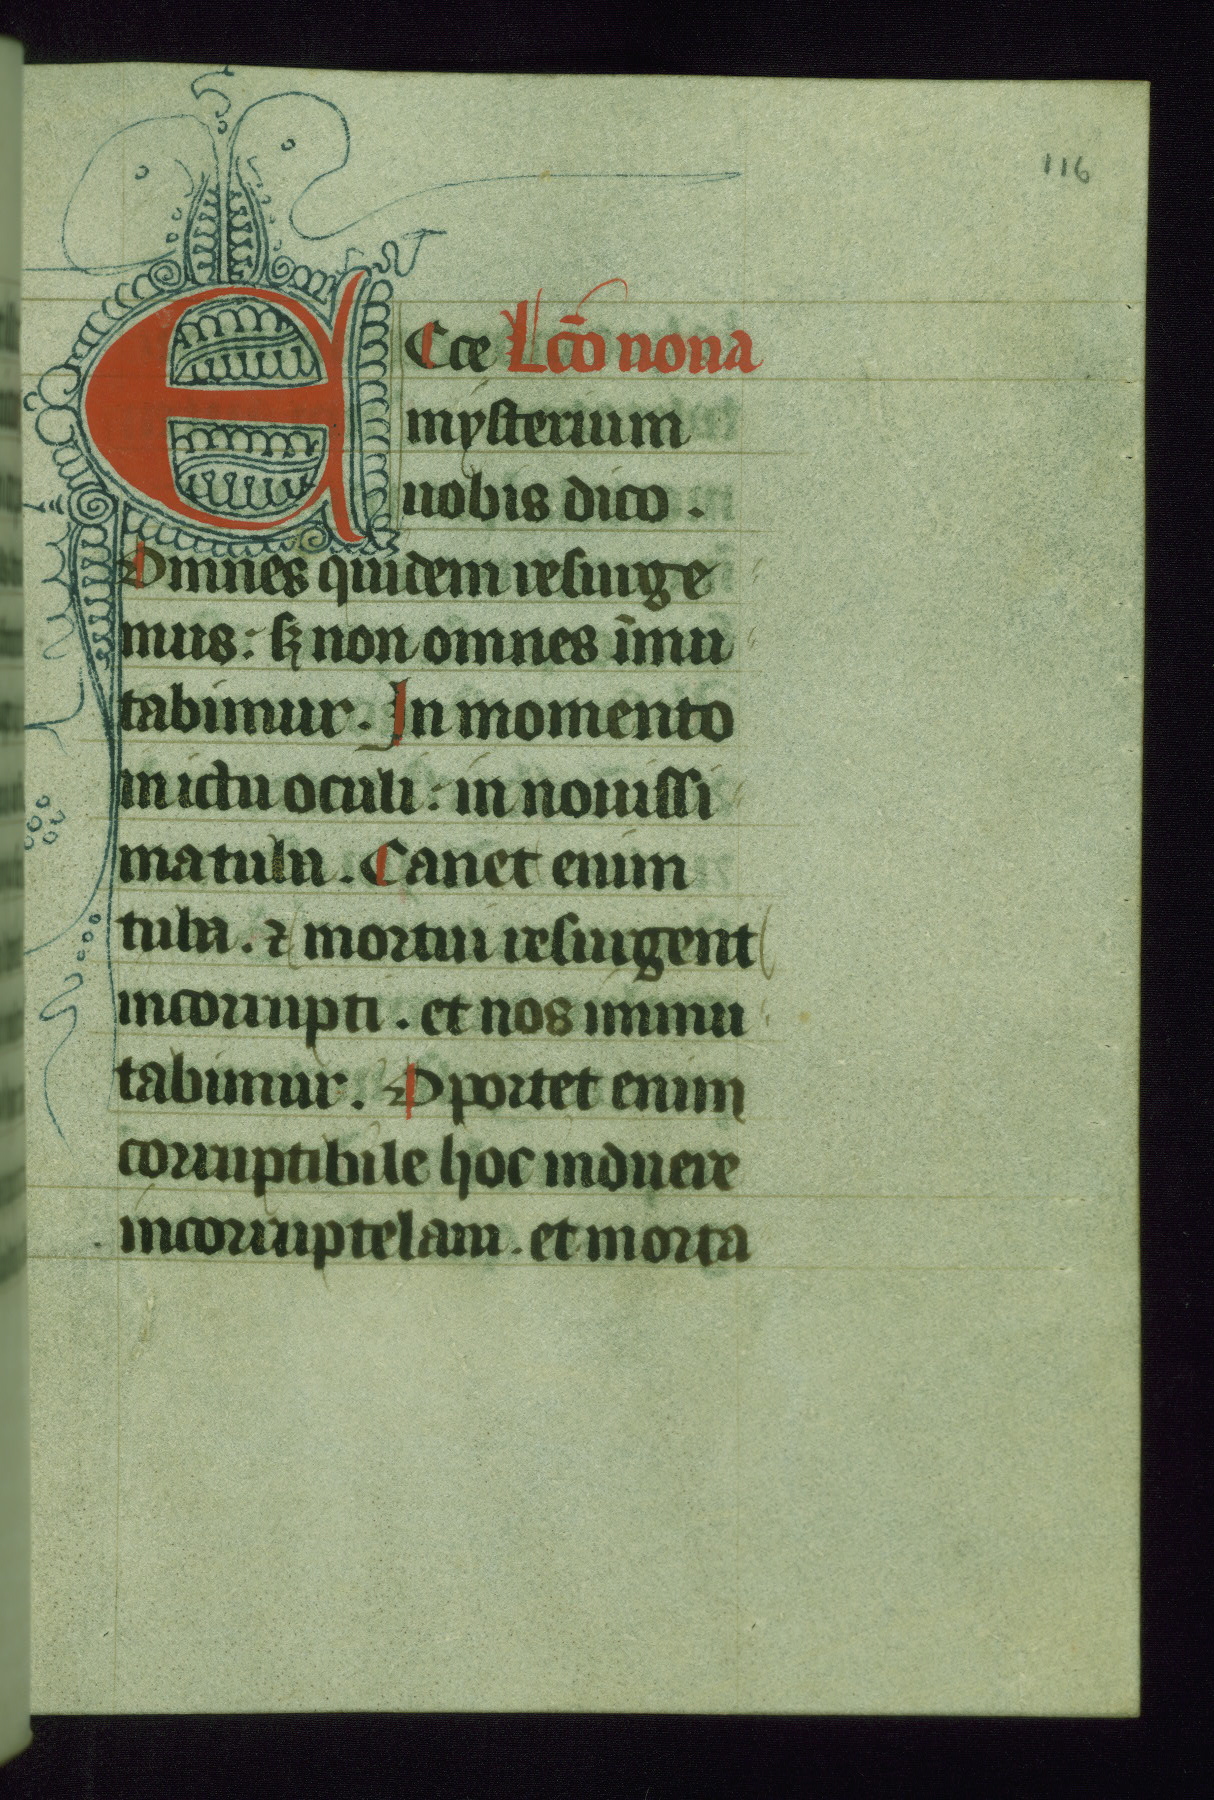 116
ECce Lc̄o nona
mysterium
uobis dico .
Omnes quidem resurge
mus : sꝫ non omnes īmu
tabimur . In momento
in ictu oculi : in nouissi
ma tuba . Canet enim
tuba . ⁊ mortui resurgent
incorrupti . et nos immu
tabimur . Oportet enim
corruptibile hoc induere
incorruptelam . et morta